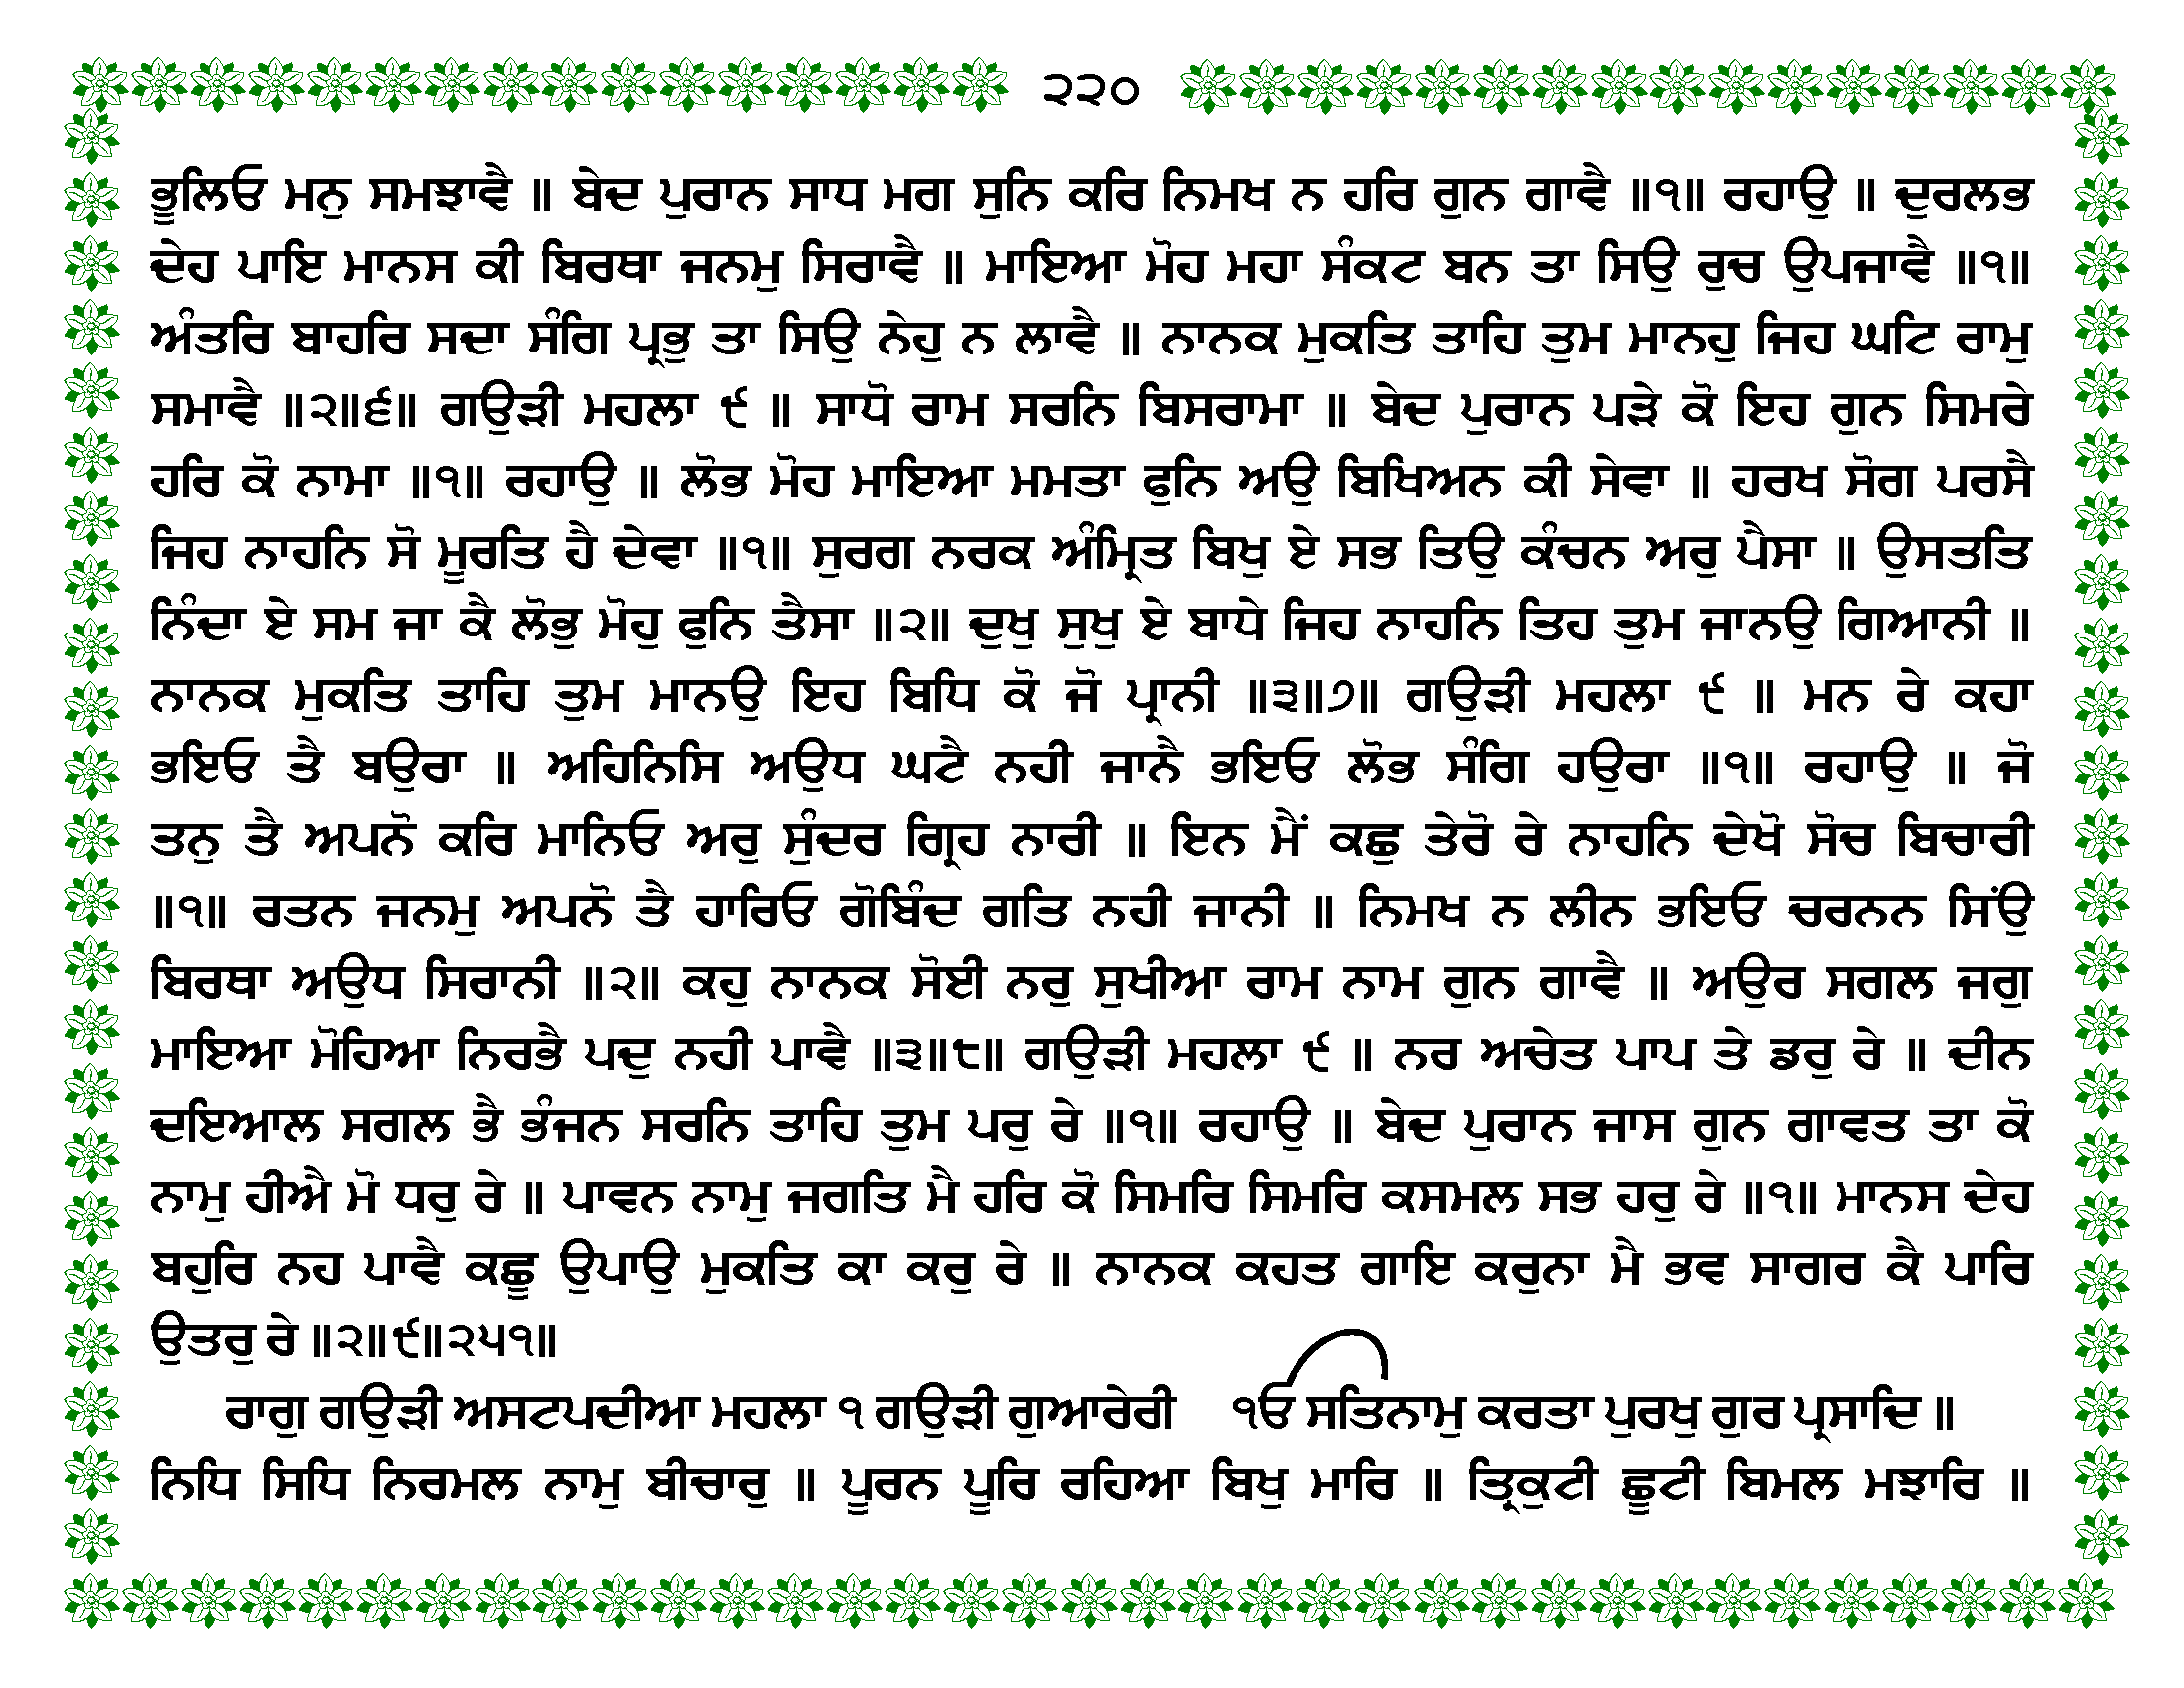 ੨੨੦
ਭੂਲਿਓ ਮਨੁ ਸਮਝਾਵੈ ॥ ਬੇਦ ਪੁਰਾਨ ਸਾਧ ਮਗ ਸੁਨਿ ਕਰਿ ਨਿਮਖ ਨ ਹਰਿ ਗੁਨ ਗਾਵੈ ॥੧॥ ਰਹਾਉ ॥ ਦੁਰਲਭ
ਦੇਹ ਪਾਇ ਮਾਨਸ ਕੀ ਬਿਰਥਾ ਜਨਮੁ ਸਿਰਾਵੈ ॥ ਮਾਇਆ ਮੋਹ ਮਹਾ ਸੰਕਟ ਬਨ ਤਾ ਸਿਉ ਰੁਚ ਉਪਜਾਵੈ ॥੧॥
ਅੰਤਰਿ ਬਾਹਰਿ ਸਦਾ ਸੰਗਿ ਪ੍ਰਭੁ ਤਾ ਸਿਉ ਨੇਹੁ ਨ ਲਾਵੈ ॥ ਨਾਨਕ ਮੁਕਤਿ ਤਾਹਿ ਤੁਮ ਮਾਨਹੁ ਜਿਹ ਘਟਿ ਰਾਮੁ
ਸਮਾਵੈ ॥੨॥੬॥ ਗਉੜੀ ਮਹਲਾ ੯ ॥ ਸਾਧੋ ਰਾਮ ਸਰਨਿ ਬਿਸਰਾਮਾ ॥ ਬੇਦ ਪੁਰਾਨ ਪੜੇ ਕੋ ਇਹ ਗੁਨ ਸਿਮਰੇ
ਹਰਿ ਕੋ ਨਾਮਾ ॥੧॥ ਰਹਾਉ ॥ ਲੋਭ ਮੋਹ ਮਾਇਆ ਮਮਤਾ ਫੁਨਿ ਅਉ ਬਿਖਿਅਨ ਕੀ ਸੇਵਾ ॥ ਹਰਖ ਸੋਗ ਪਰਸੈ
ਜਿਹ ਨਾਹਨਿ ਸੋ ਮੂਰਤਿ ਹੈ ਦੇਵਾ ॥੧॥ ਸੁਰਗ ਨਰਕ ਅੰਮ੍ਰਿਤ ਬਿਖੁ ਏ ਸਭ ਤਿਉ ਕੰਚਨ ਅਰੁ ਪੈਸਾ ॥ ਉਸਤਤਿ
ਨਿੰਦਾ ਏ ਸਮ ਜਾ ਕੈ ਲੋਭੁ ਮੋਹੁ ਫੁਨਿ ਤੈਸਾ ॥੨॥ ਦੁਖੁ ਸੁਖੁ ਏ ਬਾਧੇ ਜਿਹ ਨਾਹਨਿ ਤਿਹ ਤੁਮ ਜਾਨਉ ਗਿਆਨੀ ॥
ਨਾਨਕ ਮੁਕਤਿ ਤਾਹਿ ਤੁਮ ਮਾਨਉ ਇਹ ਬਿਧਿ ਕੋ ਜੋ ਪ੍ਰਾਨੀ ॥੩॥੭॥ ਗਉੜੀ ਮਹਲਾ ੯ ॥ ਮਨ ਰੇ ਕਹਾ
ਭਇਓ ਤੈ ਬਉਰਾ ॥ ਅਹਿਨਿਸਿ ਅਉਧ ਘਟੈ ਨਹੀ ਜਾਨੈ ਭਇਓ ਲੋਭ ਸੰਗਿ ਹਉਰਾ ॥੧॥ ਰਹਾਉ ॥ ਜੋ
ਤਨੁ ਤੈ ਅਪਨੋ ਕਰਿ ਮਾਨਿਓ ਅਰੁ ਸੁੰਦਰ ਗ੍ਰਿਹ ਨਾਰੀ ॥ ਇਨ ਮੈਂ ਕਛੁ ਤੇਰੋ ਰੇ ਨਾਹਨਿ ਦੇਖੋ ਸੋਚ ਬਿਚਾਰੀ
॥੧॥ ਰਤਨ ਜਨਮੁ ਅਪਨੋ ਤੈ ਹਾਰਿਓ ਗੋਬਿੰਦ ਗਤਿ ਨਹੀ ਜਾਨੀ ॥ ਨਿਮਖ ਨ ਲੀਨ ਭਇਓ ਚਰਨਨ ਸਿਂਉ
ਬਿਰਥਾ ਅਉਧ ਸਿਰਾਨੀ ॥੨॥ ਕਹੁ ਨਾਨਕ ਸੋਈ ਨਰੁ ਸੁਖੀਆ ਰਾਮ ਨਾਮ ਗੁਨ ਗਾਵੈ ॥ ਅਉਰ ਸਗਲ ਜਗੁ
ਮਾਇਆ ਮੋਹਿਆ ਨਿਰਭੈ ਪਦੁ ਨਹੀ ਪਾਵੈ ॥੩॥੮॥ ਗਉੜੀ ਮਹਲਾ ੯ ॥ ਨਰ ਅਚੇਤ ਪਾਪ ਤੇ ਡਰੁ ਰੇ ॥ ਦੀਨ
ਦਇਆਲ ਸਗਲ ਭੈ ਭੰਜਨ ਸਰਨਿ ਤਾਹਿ ਤੁਮ ਪਰੁ ਰੇ ॥੧॥ ਰਹਾਉ ॥ ਬੇਦ ਪੁਰਾਨ ਜਾਸ ਗੁਨ ਗਾਵਤ ਤਾ ਕੋ
ਨਾਮੁ ਹੀਐ ਮੋ ਧਰੁ ਰੇ ॥ ਪਾਵਨ ਨਾਮੁ ਜਗਤਿ ਮੈ ਹਰਿ ਕੋ ਸਿਮਰਿ ਸਿਮਰਿ ਕਸਮਲ ਸਭ ਹਰੁ ਰੇ ॥੧॥ ਮਾਨਸ ਦੇਹ
ਬਹੁਰਿ ਨਹ ਪਾਵੈ ਕਛੂ ਉਪਾਉ ਮੁਕਤਿ ਕਾ ਕਰੁ ਰੇ ॥ ਨਾਨਕ ਕਹਤ ਗਾਇ ਕਰੁਨਾ ਮੈ ਭਵ ਸਾਗਰ ਕੈ ਪਾਰਿ
ਉਤਰੁ ਰੇ ॥੨॥੯॥੨੫੧॥
ਰਾਗੁ ਗਉੜੀ ਅਸਟਪਦੀਆ ਮਹਲਾ ੧ ਗਉੜੀ ਗੁਆਰੇਰੀ ੴ ਸਤਿਨਾਮੁ ਕਰਤਾ ਪੁਰਖੁ ਗੁਰ ਪ੍ਰਸਾਦਿ ॥
ਨਿਧਿ ਸਿਧਿ ਨਿਰਮਲ ਨਾਮੁ ਬੀਚਾਰੁ ॥ ਪੂਰਨ ਪੂਰਿ ਰਹਿਆ ਬਿਖੁ ਮਾਰਿ ॥ ਤ੍ਰਿਕੁਟੀ ਛੂਟੀ ਬਿਮਲ ਮਝਾਰਿ ॥